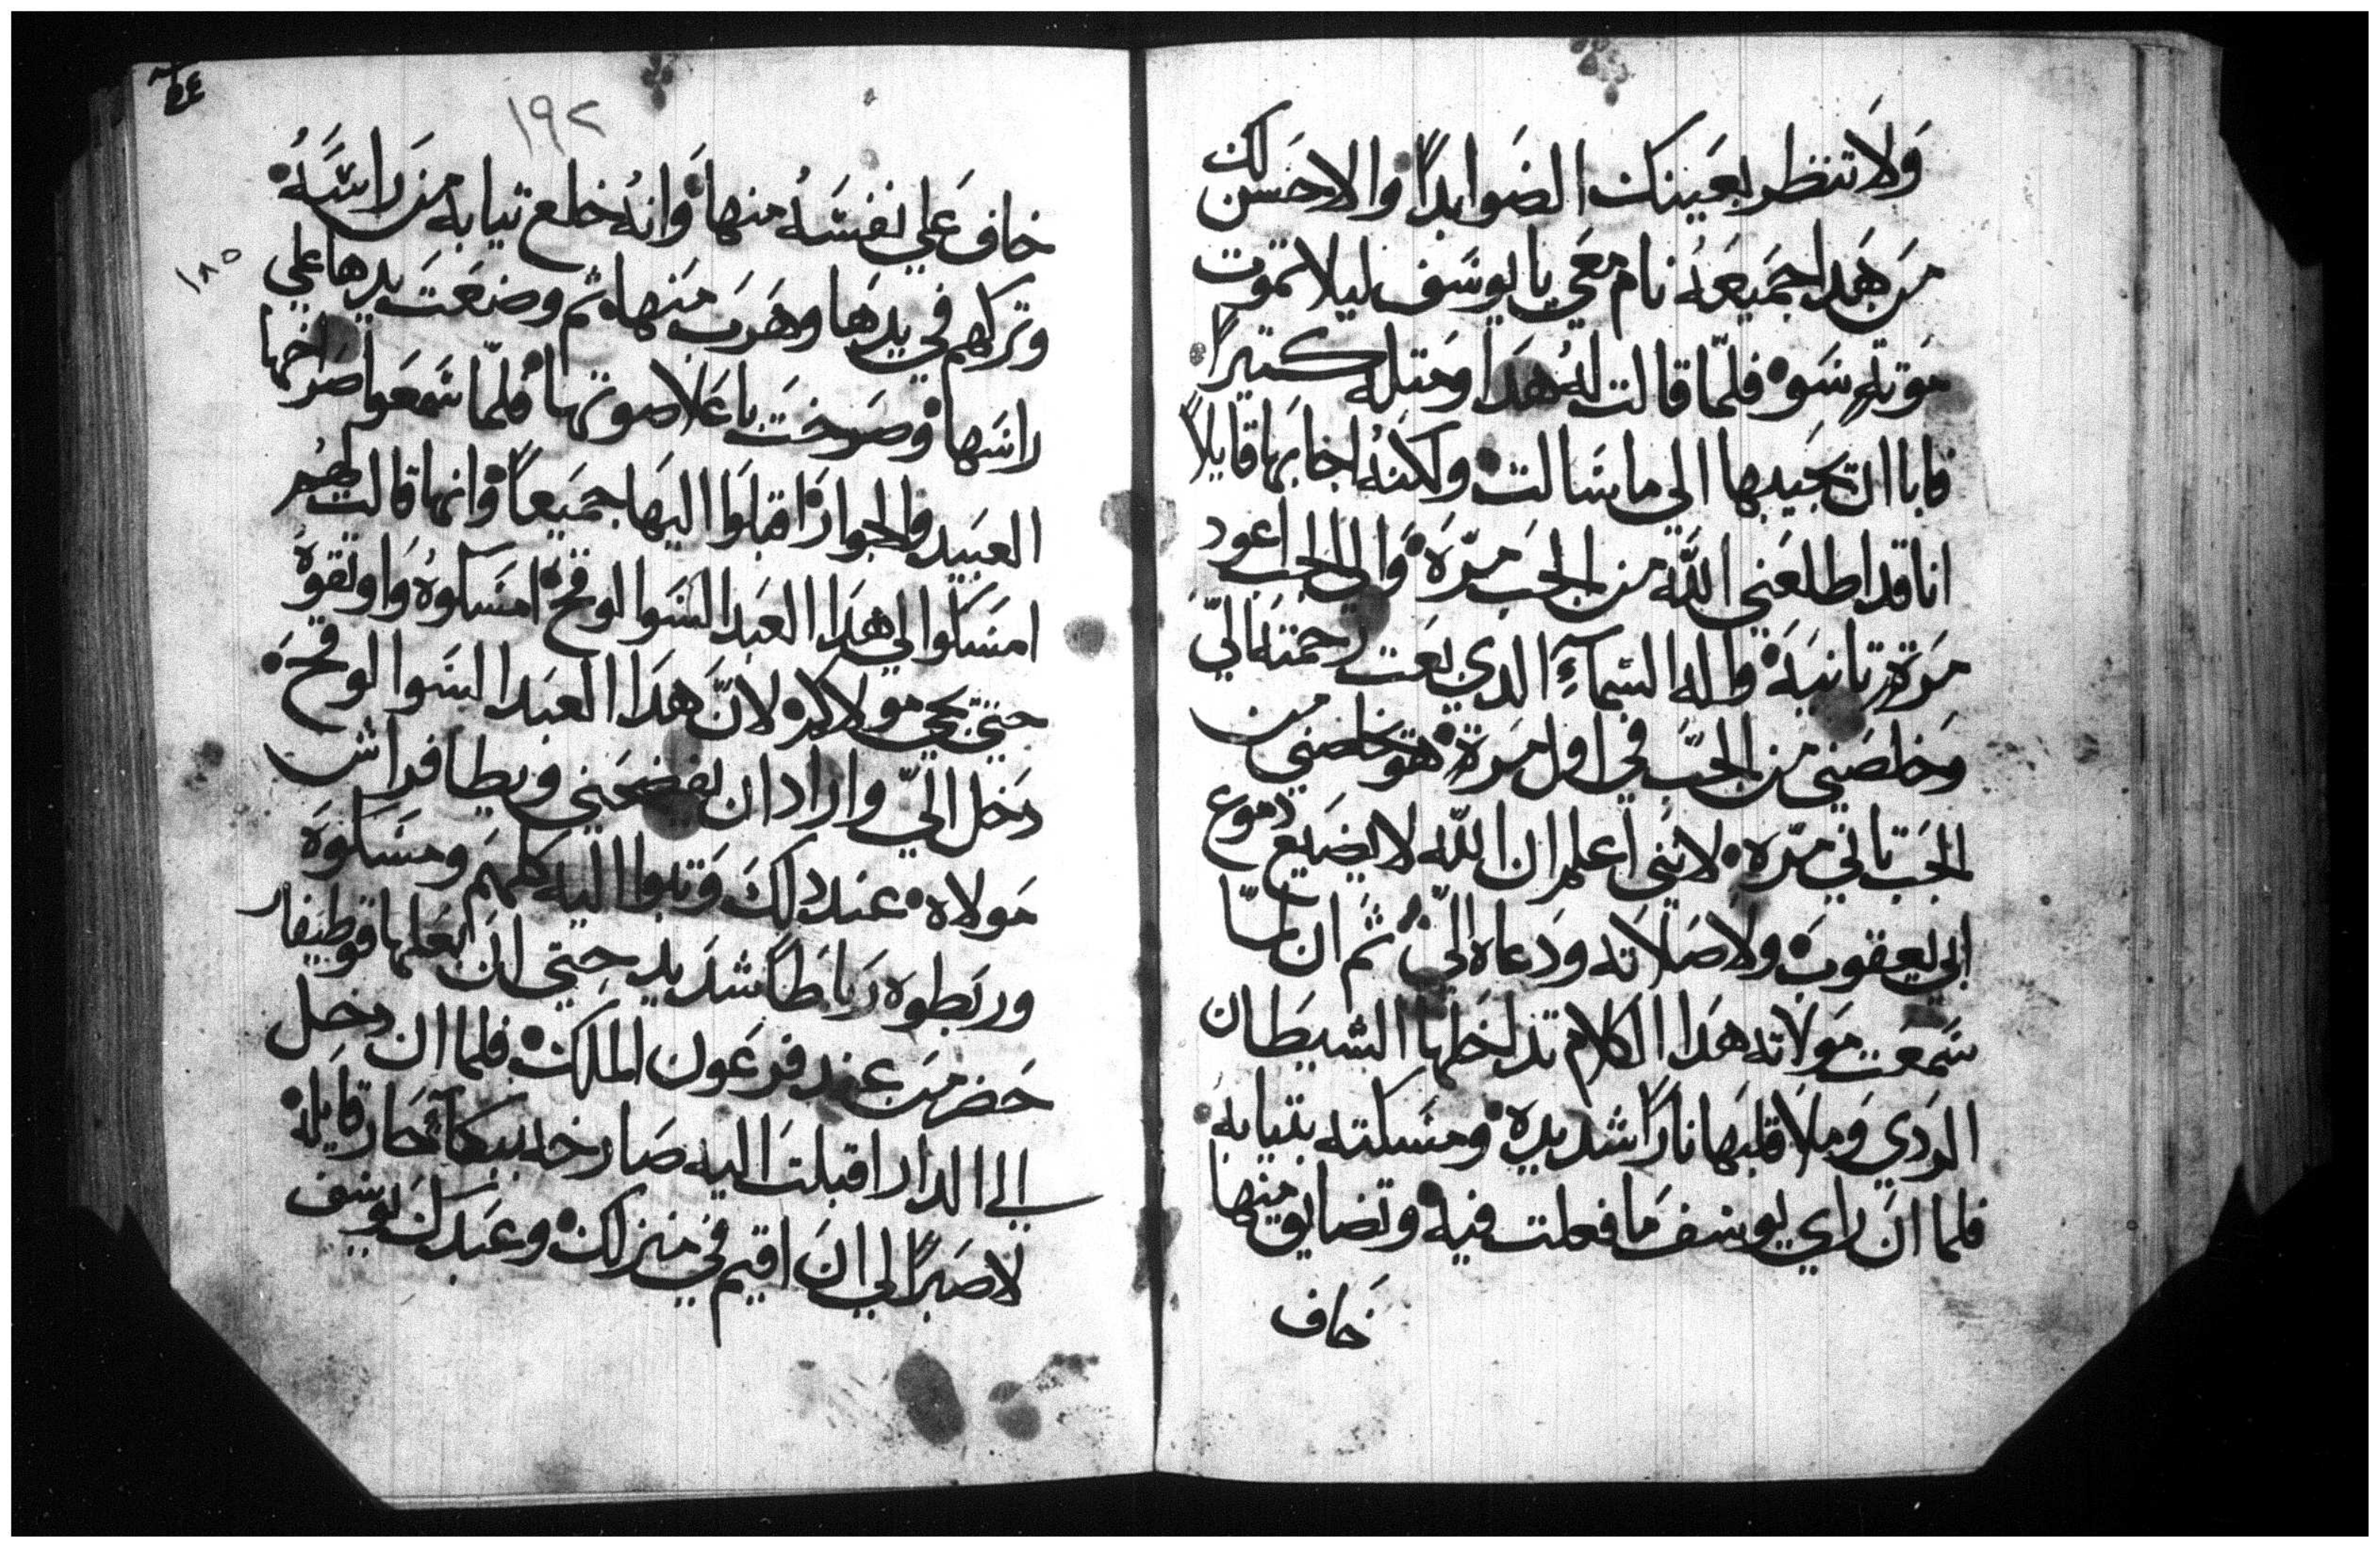 ولا تنظر بعينك الضوا بدًا والا حسن لك
من هدا جميعه نام معي يا يوسف ليلا تموت
موتة سو فلما قالت له هدا ومتله كتيرًا
فابا ان يجيبها الي ما سالت ولكنه اجابها قايلاً
انا قد اطلعني الله من الجب مرة والي الجب اعود
مرة تانية واله السمآء الدي بعت رحمته اليّ
وخلصني من الجب في اول مرة هو يخلصني من
الجب تاني مرة لانني اعلم ان الله لا يضيع دموع
ابي يعقوب ولا صلاته ودعاه اليّ ثم ان لمّا
سمعت مولاته هدا الكلام تداخلها الشيطان
الردي وملا قلبها نارًا شديدة ومسكته بتيابه
فلما ان راي يوسف ما فعلت فيه وتضايق منها
خاف
١٩٢
خاف علي نفسه منها وانه خلع تيابه من راسه
وتركهم في يدها وهرب منها ثم وضعت يدها علي
١٨٥
راسها وصرخت باعلا صوتها فلمّا سمعوا صراخها
العبيد والجوار اقبلوا اليها جميعًا وانها قالت لهم
امسكوا لي هدا العبد السوا الوقح امسكوه واوتقوه
حتي يجي مولاكم لانّ هدا العبد السوا الوقح
دخل اليّ واراد ان يفضحني ويطا فراش
مولاه عند دلك وتبوا اليه كلهم ومسكوه
وربطوه رباطًا شديد حتي ان بعلها قوطيفار
حضر من عند فرعون الملك فلما ان دخل
الي الدار اقبلت اليه صارخه ببكآ حار قايلة
لا صبرًا لي ان اقيم في منزلك وعبدك يوسف